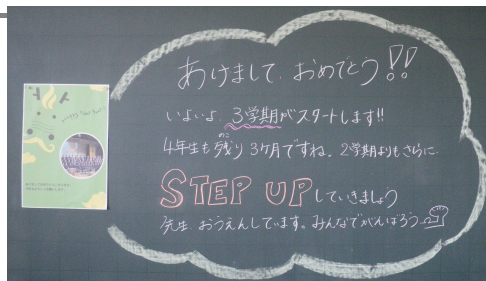 あけまして、おめでとう!!
いよいよ、3学期がスタートします!!
4年生も残り3ヶ月ですね。2学期よりもさらに
のこ
STEP UPしていきましょう
先生、おうえんしています。みんなでがんばろう